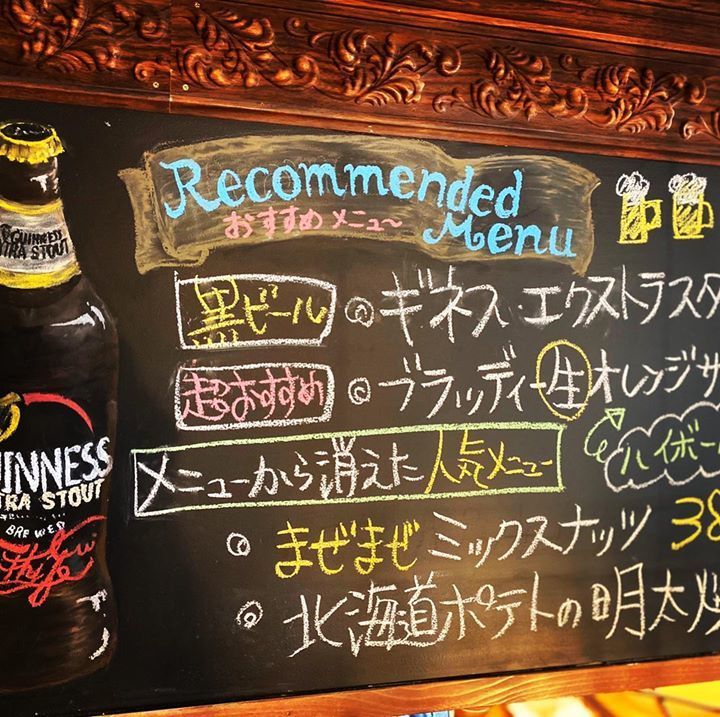 Recommended
おすすめメニュー
Menu
黒ビール ◎ ギネス・エクストラスタ
超おすすめ ◎ ブラッディー生オレンジサ
メニューから消えた人気メニュー
ハイボー
◎ まぜまぜミックスナッツ 38
◎ 北海道ポテトの明太
GUINNESS
EXTRA STOUT
UINNESS
TRA STOUT
BREWED